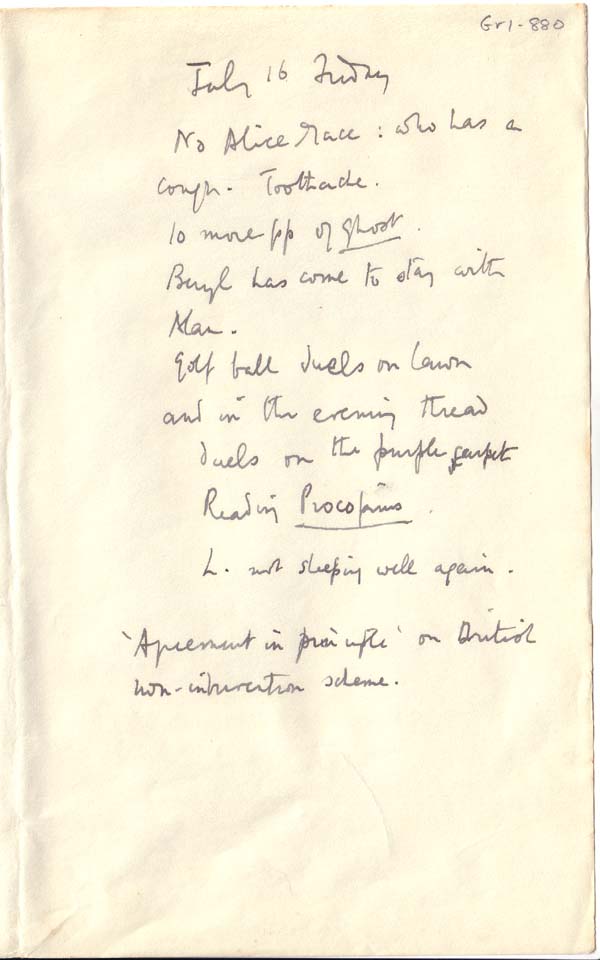 Gr1-880
July 16 Friday
No Alice Grace: who has a
cough. Toothache.
10 more pp of Ghost.
Beryl has come to stay with
Alan.
Golf ball duels on lawn
and in the evening thread
duels on the purple carpet
Reading Procopius.
L. not sleeping well again.
'Agreement in principle' on British
non-intervention scheme.